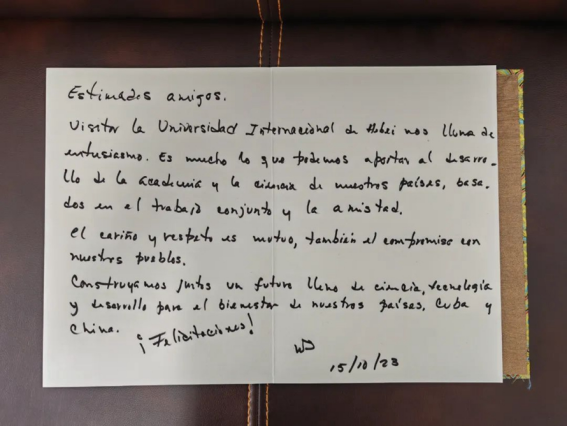 Estimados amigos.
Visitar la Universidad Internacional de Hebei nos llena de
entusiasmo. Es mucho lo que podemos aportar al desarro-
llo de la academia y la ciencia de nuestros países, basa-
dos en el trabajo conjunto y la amistad.
El cariño y respeto es mutuo, también el compromiso con
nuestros pueblos.
Construyamos juntos un futuro lleno de ciencia, tecnología
y desarrollo para el bienestar de nuestros países, Cuba y
China. ¡Felicitaciones!
15/10/23